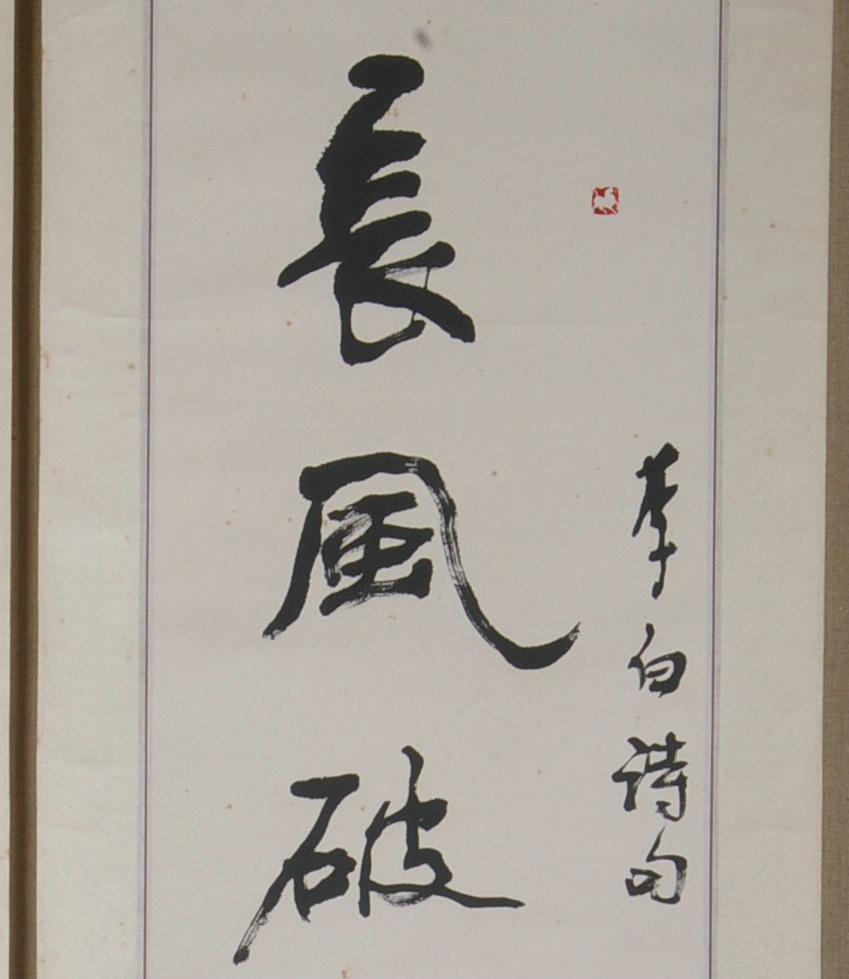 李白詩句
長風破